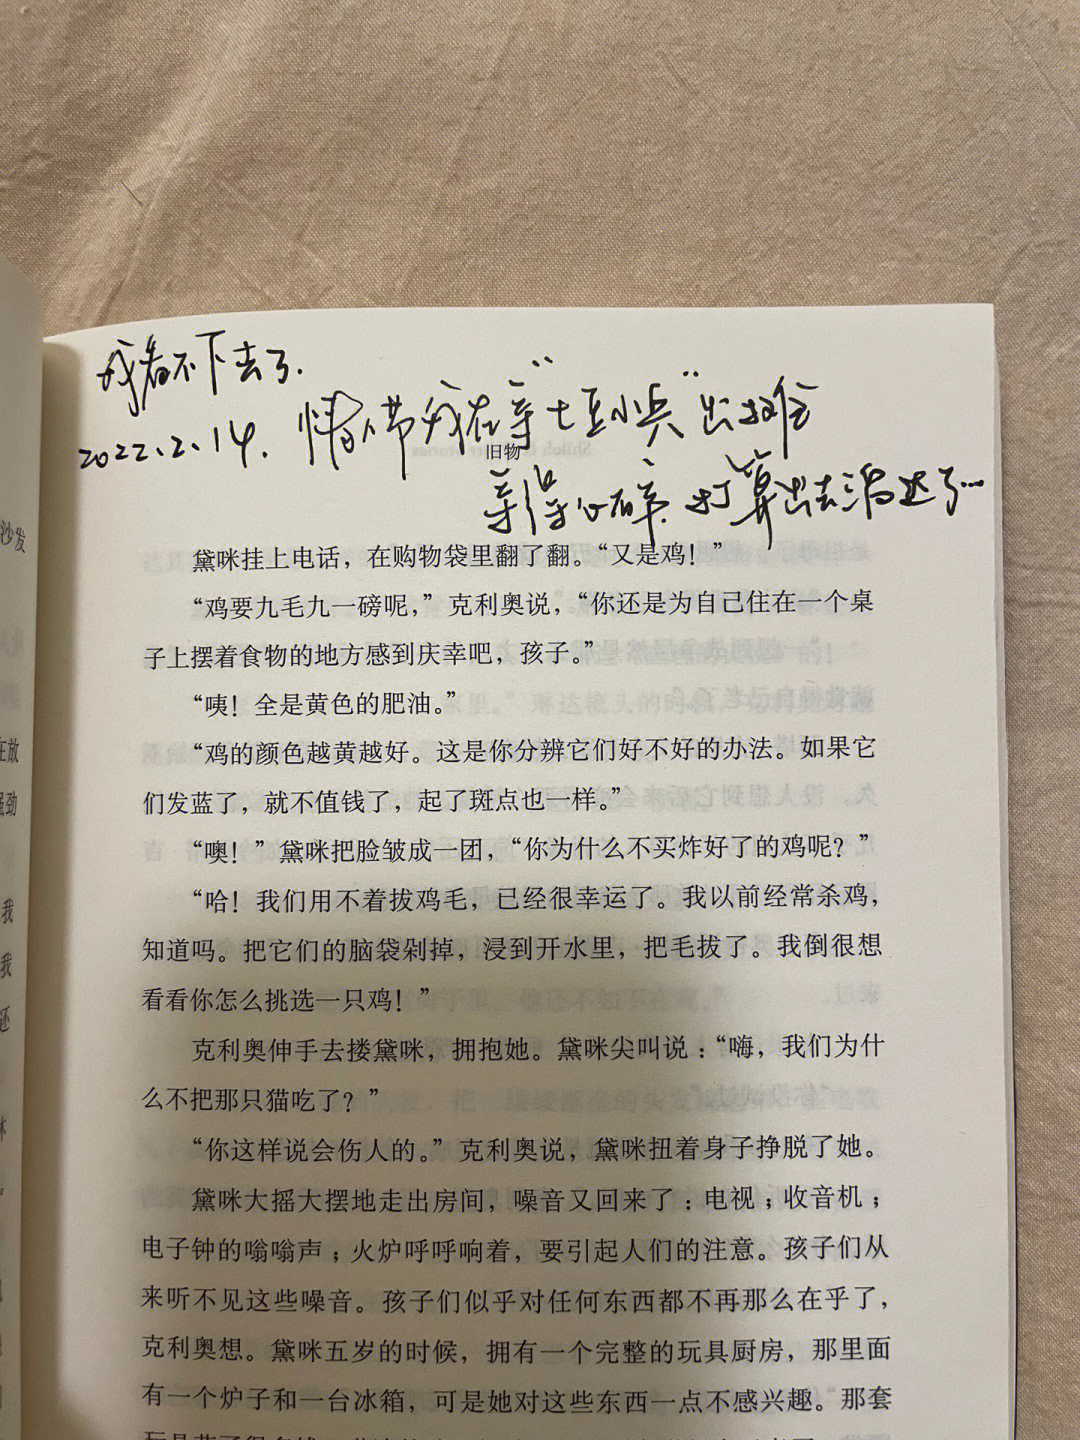 我看不下去了.
2022.2.14. 情人节我在等“土豆小兵”出摊
旧物
等得心碎. 打算出去溜达了…
黛咪挂上电话，在购物袋里翻了翻。“又是鸡！”
“鸡要九毛九一磅呢，”克利奥说，“你还是为自己住在一个桌
子上摆着食物的地方感到庆幸吧，孩子。”
“咦！全是黄色的肥油。”
“鸡的颜色越黄越好。这是你分辨它们好不好的办法。如果它
们发蓝了，就不值钱了，起了斑点也一样。”
“噢！”黛咪把脸皱成一团，“你为什么不买炸好了的鸡呢？”
“哈！我们用不着拔鸡毛，已经很幸运了。我以前经常杀鸡，
知道吗。把它们的脑袋剁掉，浸到开水里，把毛拔了。我倒很想
看看你怎么挑选一只鸡！”
克利奥伸手去搂黛咪，拥抱她。黛咪尖叫说：“嗨，我们为什
么不把那只猫吃了？”
“你这样说会伤人的。”克利奥说，黛咪扭着身子挣脱了她。
黛咪大摇大摆地走出房间，噪音又回来了：电视；收音机；
电子钟的嗡嗡声；火炉呼呼响着，要引起人们的注意。孩子们从
来听不见这些噪音。孩子们似乎对任何东西都不再那么在乎了，
克利奥想。黛咪五岁的时候，拥有一个完整的玩具厨房，那里面
有一个炉子和一台冰箱，可是她对这些东西一点不感兴趣。那套